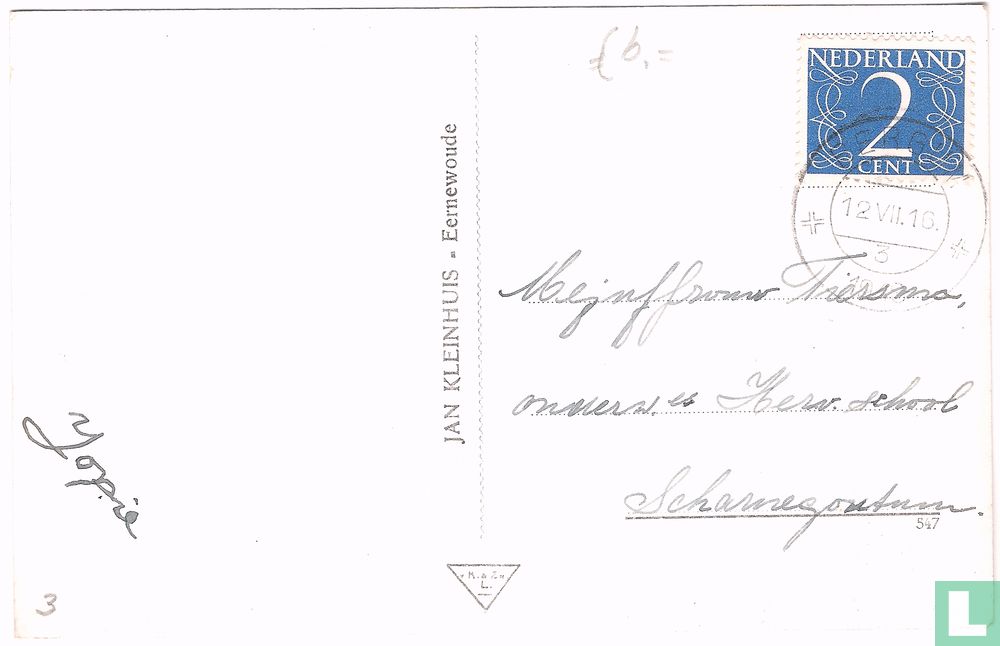 ƒ 6,=
NEDERLAND
2
CENT
12.VII.16.
3
JAN KLEINHUIS - Eernewoude
Mejuffrouw Tiersma,
onderw.es Herv. school
Scharnegoutum.
547
Jopie
3
L